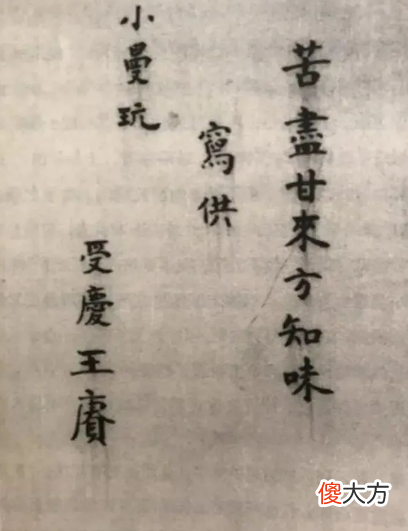 苦盡甘來方知味
寫供
小曼玩
受慶王賡
傻大方